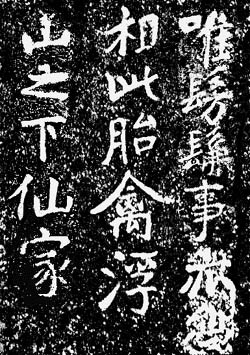 唯髣髴事
相此胎禽浮
山之下仙家